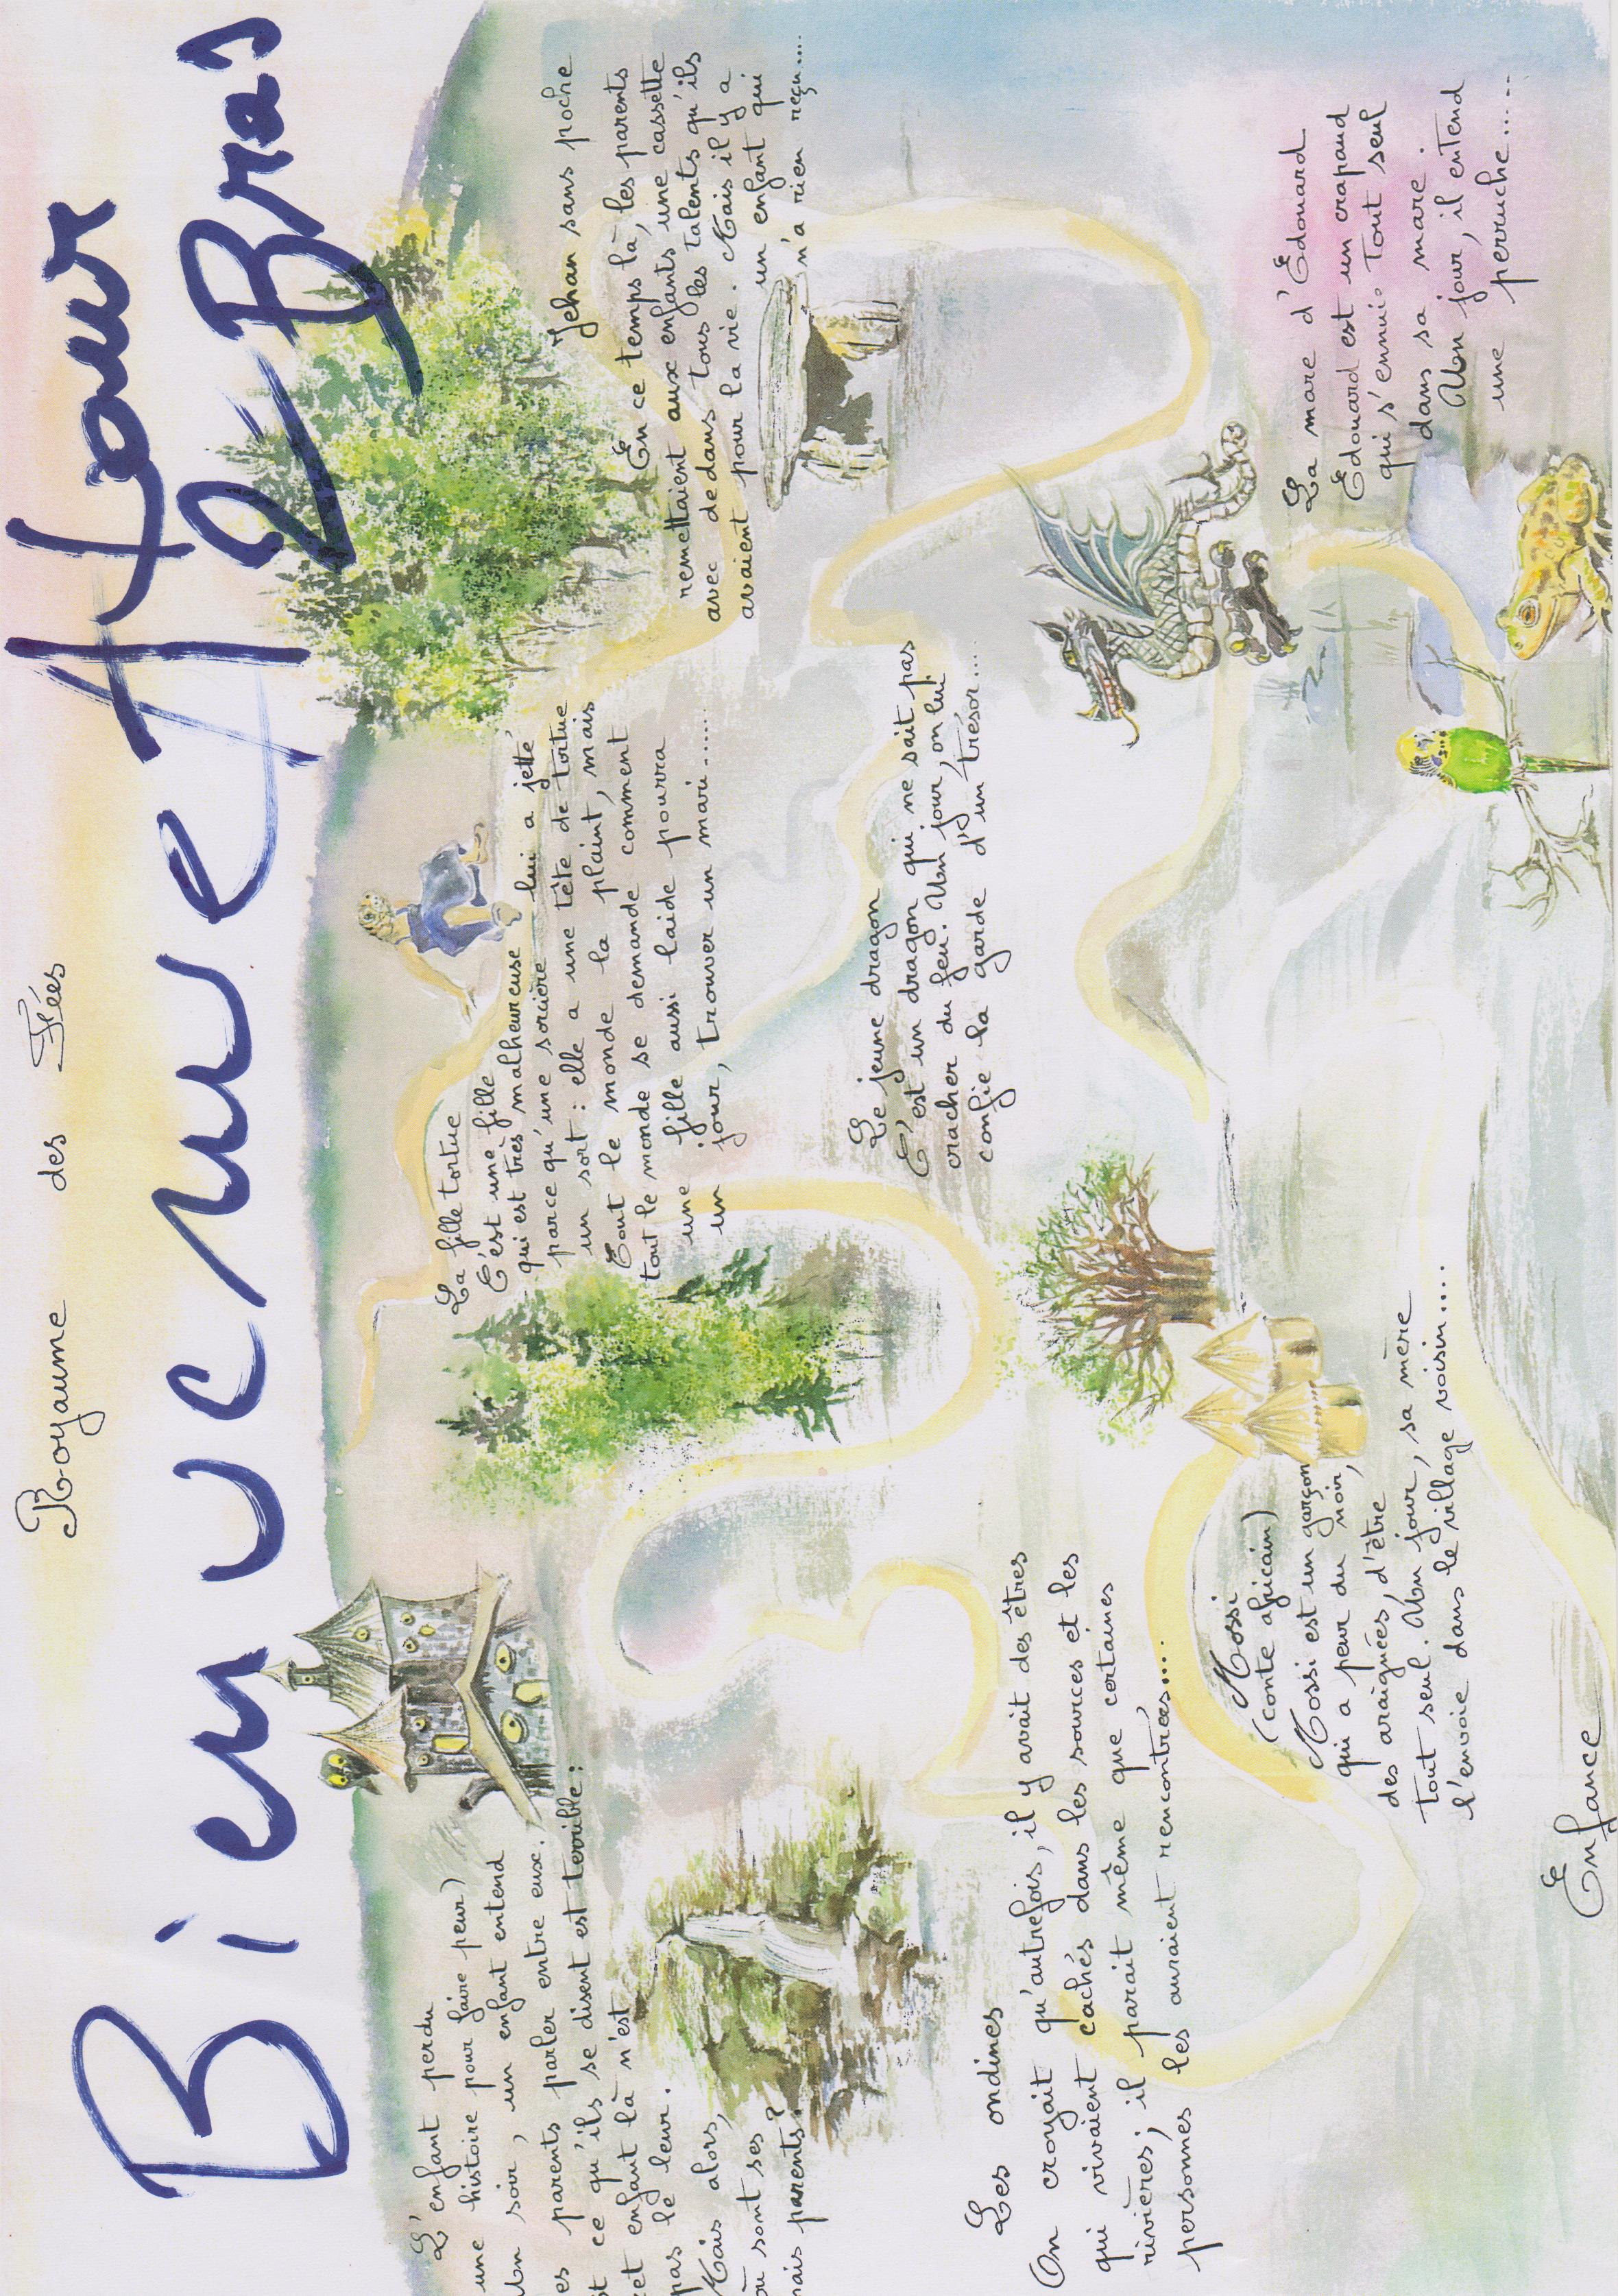 Royaume des Fées
Bienvenue A tour
2 Bras
L'enfant perdu
une histoire pour faire peur)
Un soir, un enfant entend
es parents parler entre eux.
t ce qu'ils se disent est terrible :
cet enfant là n'est
pas le leur.
Mais alors,
où sont ses
rais parents?
La fille tortue
C'est une fille
qui est très malheureuse
parce qu'une sorcière lui a jetté
un sort : elle a une tête de tortue
Tout le monde la plaint, mais
tout le monde se demande comment
une fille aussi laide pourra
un jour, trouver un mari......
Jehan sans poche
En ce temps là, les parents
remettaient aux enfants une cassette
avec dedans tous les talents qu'ils
avaient pour la vie. Mais il y a
un enfant qui
n'a rien reçu....
Le jeune dragon
C'est un dragon qui ne sait pas
cracher du feu. Un jour, on lui
confie la garde d'un trésor...
Les ondines
On croyait qu'autrefois, il y avait des êtres
qui vivaient cachés dans les sources et les
rivières; il parait même que certaines
personnes les auraient rencontrées....
Mossi
(conte africain)
Mossi est un garçon
qui a peur du noir,
des araignées, d'être
tout seul. Un jour, sa mère
l'envoie dans le village voisin....
La mare d'Edouard
Edouard est un crapaud
qui s'ennuie tout seul
dans sa mare.
Un jour, il entend
une perruche.....
Enfance